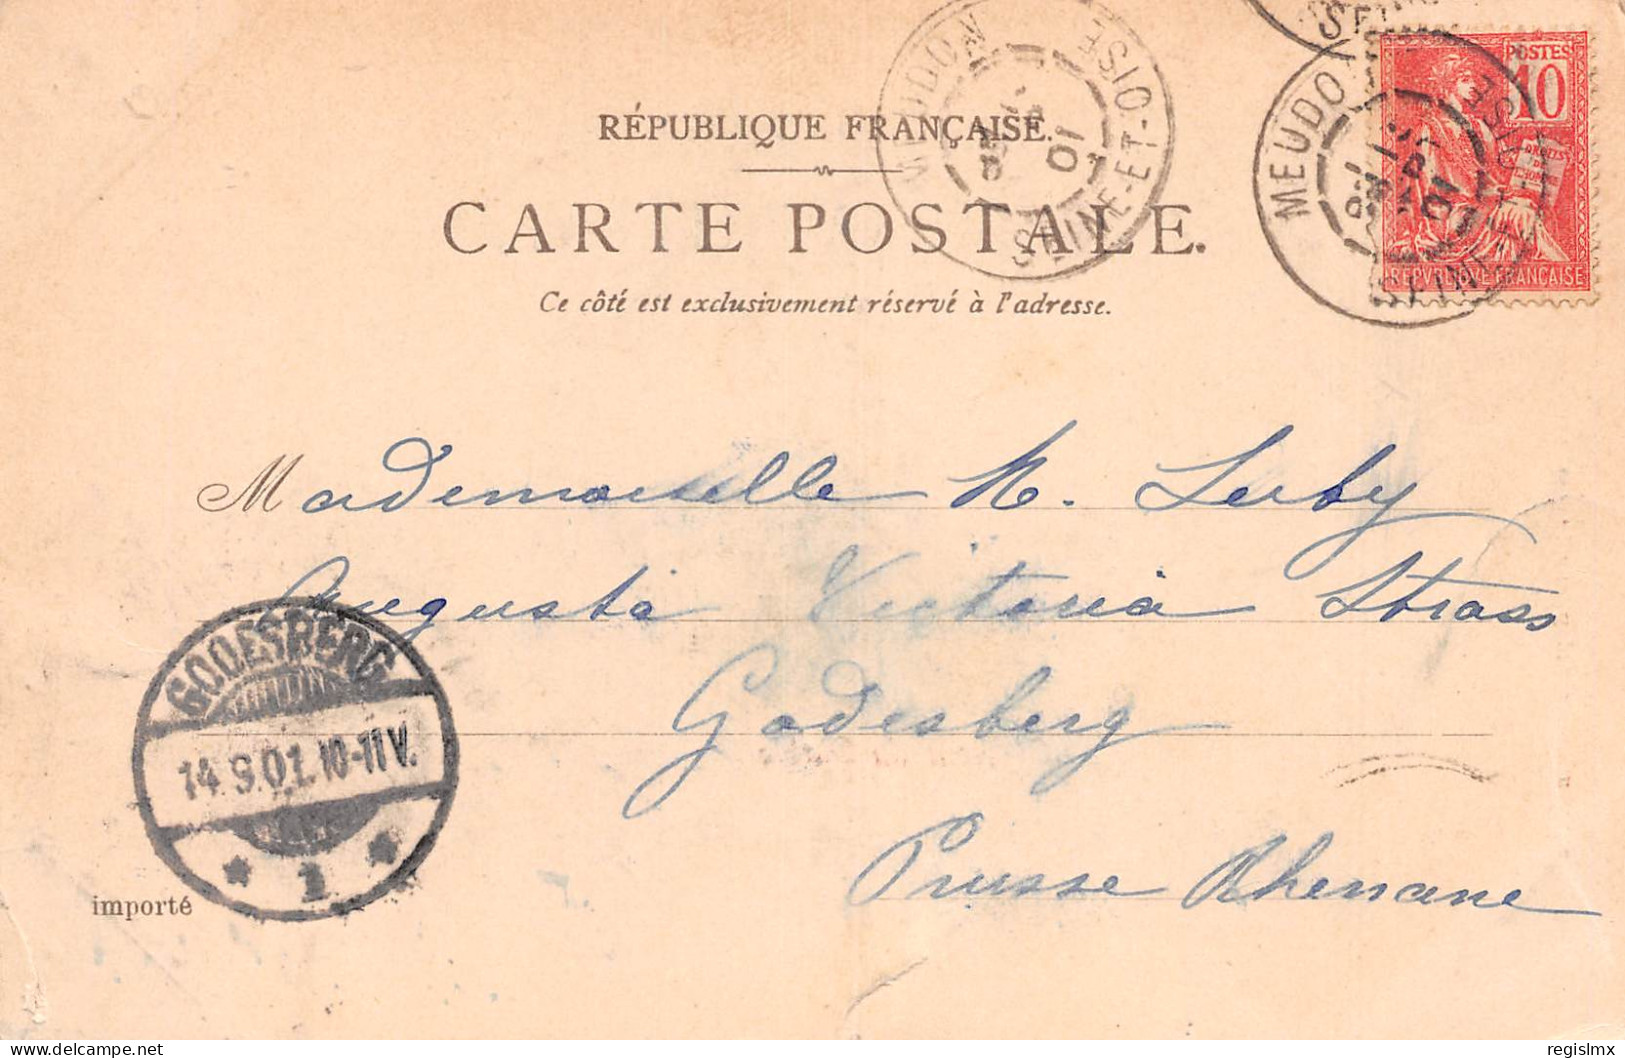 RÉPUBLIQUE FRANÇAISE.
CARTE POSTALE.
Ce côté est exclusivement réservé à l'adresse.
MEUDON
SEINE-ET-OISE
01
MEUDON
SEINE-ET-OISE
POSTES
10
DROITS DE L'HOMME
REPVBLIQVE FRANÇAISE
Mademoiselle
Augusta Victoria Strass
Godesberg
Prusse Rhenane
GODESBERG
14.9.01.10-11V.
* 1 *
importé
delcampe.net
regislmx